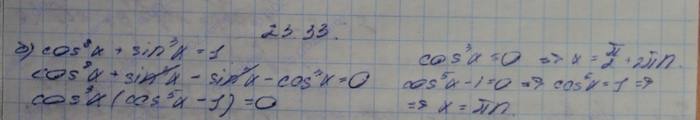 23.33.
б) cos⁸x + sin³x = 1
cos⁸x + sin²x - sin²x - cos³x = 0
cos³x (cos⁵x - 1) = 0
cos³x = 0 => x = π/2 + 2πn
cos⁵x - 1 = 0 => cos⁵x = 1 =>
=> x = πn.